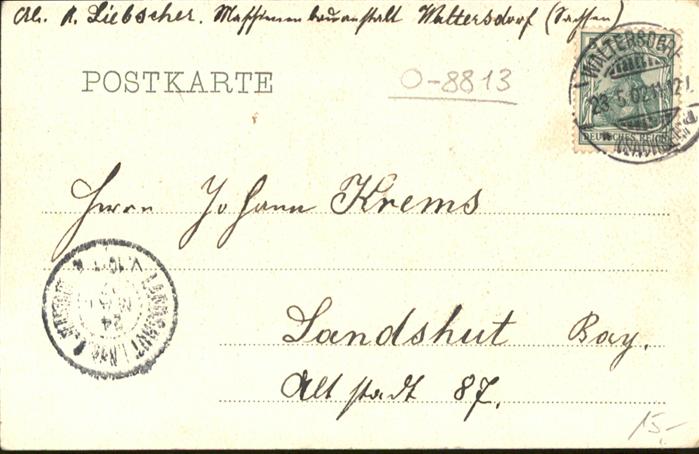 A. Liebscher. Maschinenbauanstalt Waltersdorf (Sachsen)
POSTKARTE
O-8813
WALTERSDORF
23.5.02.11-12V.
(SACHSEN)
DEUTSCHES REICH
Herrn Johann Krems
LANDSHUT
24
V.10-11
Landshut Bay.
Altstadt 87.
15,-